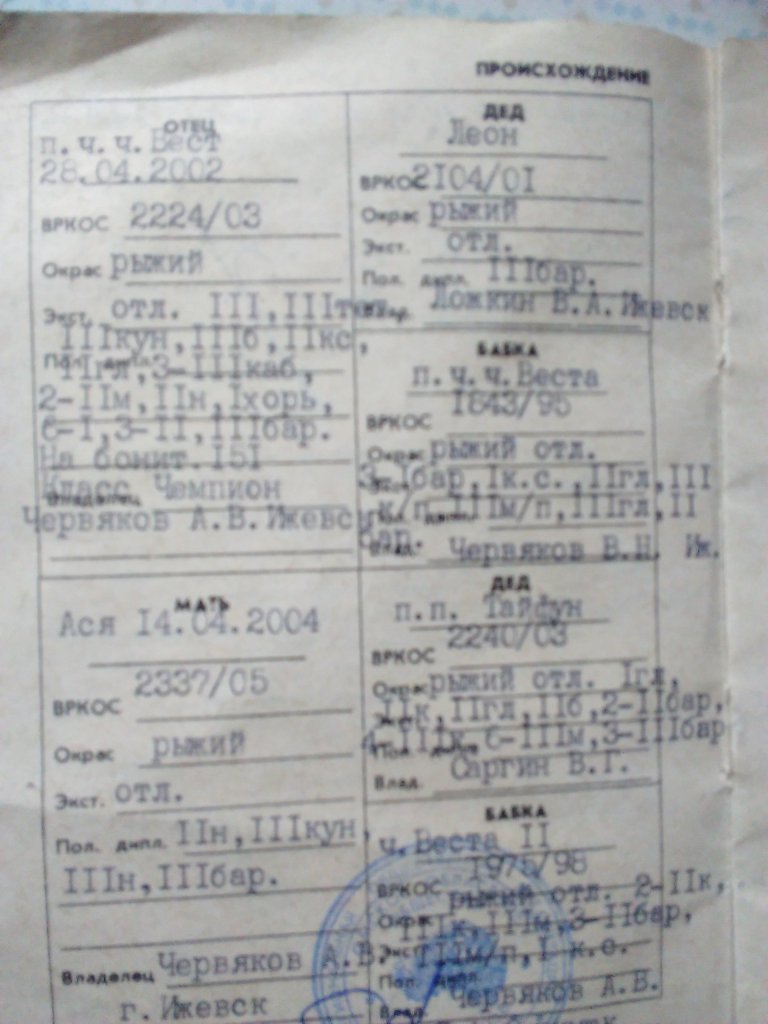 ПРОИСХОЖДЕНИЕ
ОТЕЦ
п.ч.ч.Вест
28.04.2002
ВРКОС 2224/03
Окрас рыжий
Экст. отл. III,III
IIIкун,IIIб,IIкс,
Пол. дипл.
IIгл,3-IIIкаб,
2-IIм,IIн,Iхорь,
6-I,3-II,IIIбар.
На бонит.I5I
Класс Чемпион
Владелец
Червяков А.В.Ижевск
ДЕД
Леон
ВРКОС 2I04/0I
Окрас рыжий
Экст. отл.
Пол. дипл. IIIбар.
Ложкин В.А.Ижевск
БАБКА
п.ч.ч.Веста
I643/95
ВРКОС
Окрас рыжий отл.
3-Iбар,Iк.с.,IIгл,III
к/п,IIIм/п,IIIгл,II
бар.
Влад. Червяков В.Н. Иж.
МАТЬ
Ася I4.04.2004
2337/05
ВРКОС
Окрас рыжий
Экст. отл.
Пол. дипл. IIн,IIIкун,
IIIн,IIIбар.
Владелец Червяков А.В.
г.Ижевск
ДЕД
п.п. Тайфун
2240/03
ВРКОС
Окрас рыжий отл. Iгл,
IIк,IIгл,IIб,2-IIбар,
4-IIIк,6-IIIм,3-IIIбар
Пол. дипл.
Влад. Саргин В.Г.
БАБКА
ч.Веста II
I975/98
ВРКОС
рыжий отл. 2-IIк,
Окрас
IIIк,IIIм,3-IIбар,
Экст. IIIм/п,I к.с.
Пол. дипл.
Червяков А.В.
Влад.